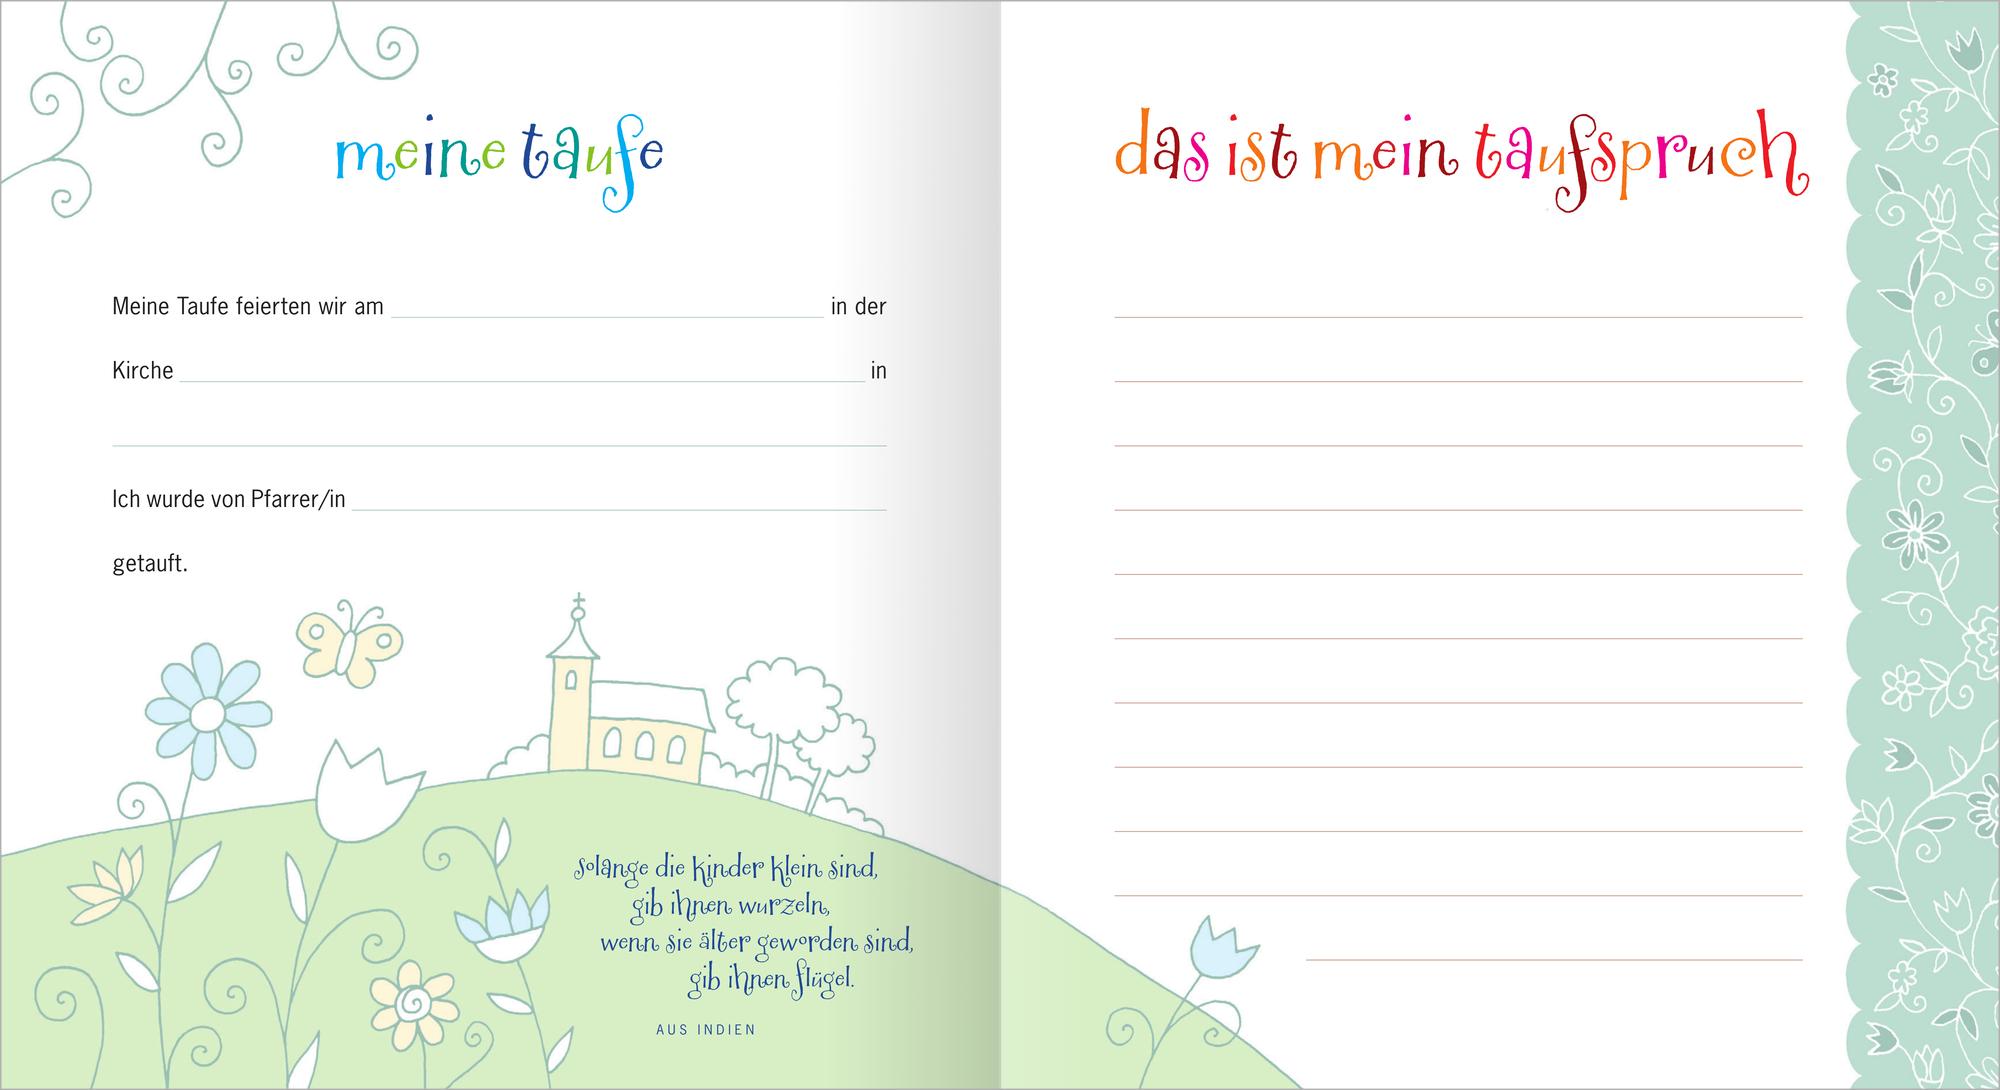 meine taufe
Meine Taufe feierten wir am in der
Kirche in
Ich wurde von Pfarrer/in
getauft.
solange die kinder klein sind,
gib ihnen wurzeln,
wenn sie älter geworden sind,
gib ihnen flügel.
AUS INDIEN
das ist mein taufspruch